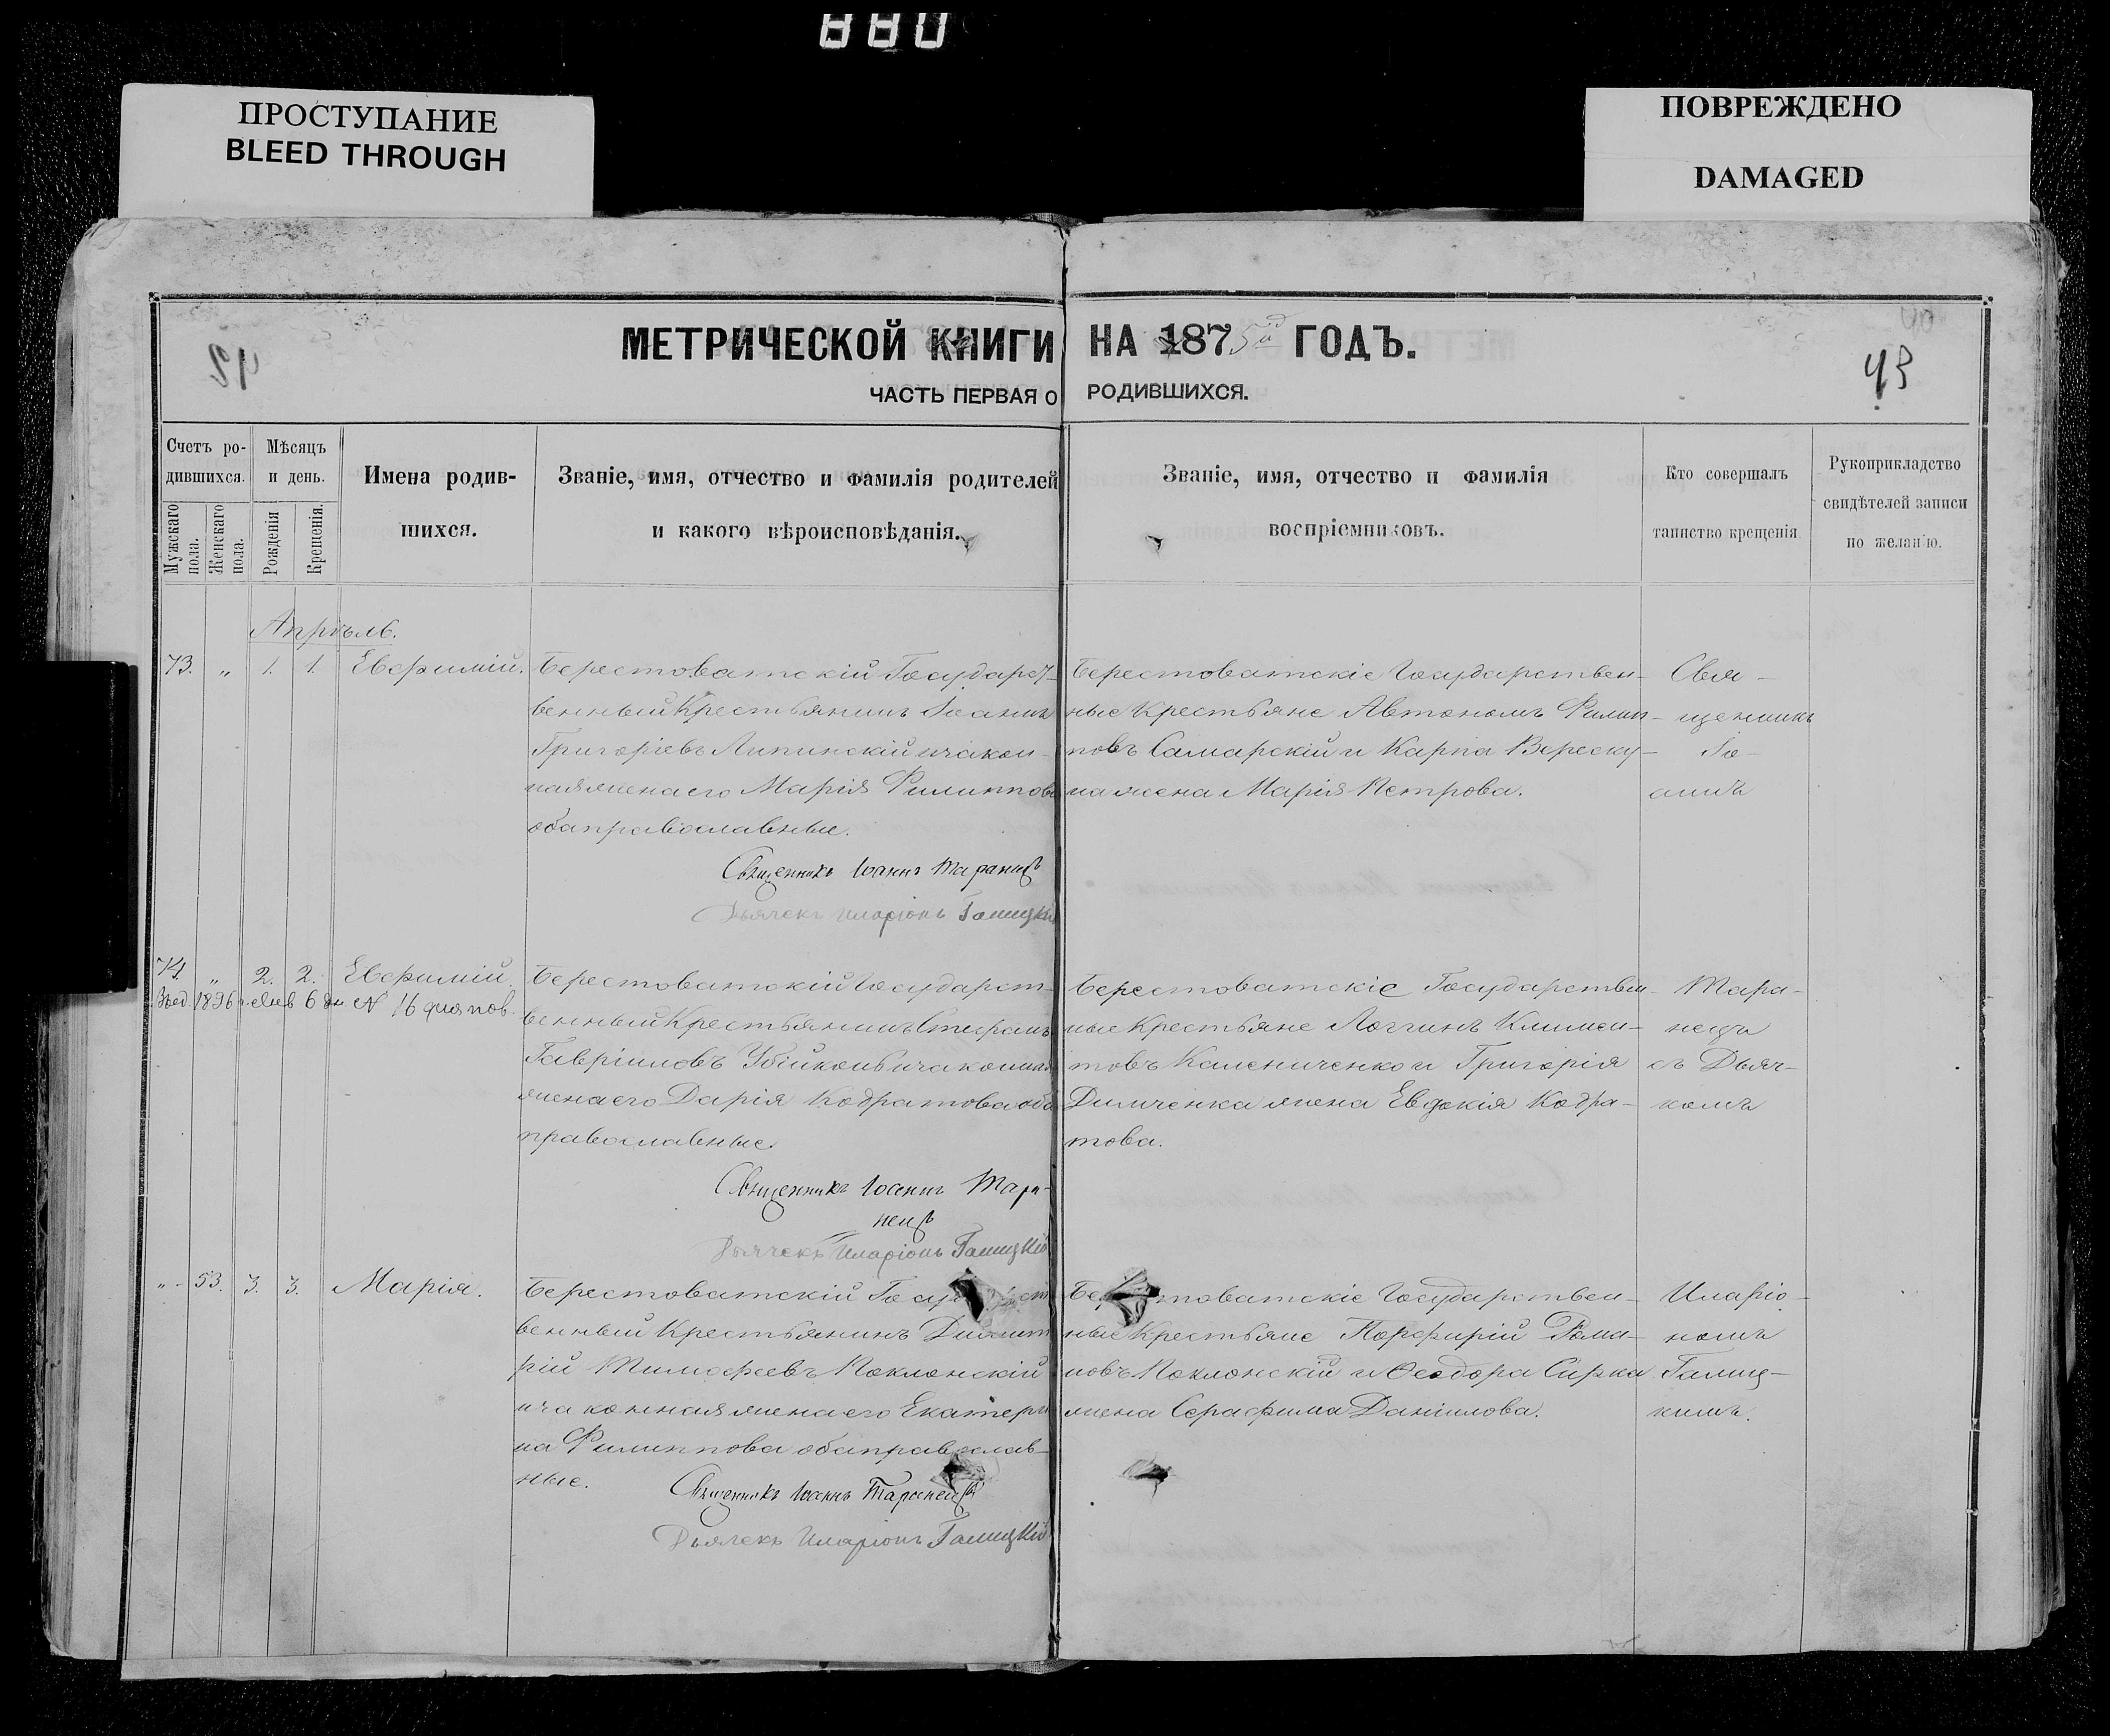 880
ПРОСТУПАНИЕ
BLEED THROUGH
ПОВРЕЖДЕНО
DAMAGED
МЕТРИЧЕСКОЙ КНИГИ НА 1875й ГОДЪ.
43
ЧАСТЬ ПЕРВАЯ О РОДИВШИХСЯ.
Счетъ ро-
дившихся.
Мужскаго пола.
Женскаго пола.
Мѣсяцъ
и день.
Рожденія
Крещенія.
Имена родив-
шихся.
Званіе, имя, отчество и фамилія родителей
и какого вѣроисповѣданія.
Званіе, имя, отчество и фамилія
воспріемниковъ.
Кто совершалъ
таинство крещенія
Рукоприкладство
свидѣтелей записи
по желанію.
Апрѣль.
73. „ 1. 1. Евфимій.
Берестоватскій Государст-
венный Крестьянинъ Іоаннъ
Григоріевъ Липинскій и закон-
ная жена его Марія Филиппова
оба православные.
Священникъ Іоаннъ Таранецъ
Дьячекъ Иларіонъ Галицкій
Берестоватскіе Государствен-
ные Крестьяне Автономъ Филип-
повъ Самарскій и Карпа Вереску-
на жена Марія Петрова.
Свя-
щенникъ
Іо-
аннъ
74 „ 2. 2. Евфимій.
1896 6 N 16
Берестоватскій Государст-
венный Крестьянинъ Стефанъ
Гавріиловъ Убійконь и законная
жена его Дарія Кодратова оба
православные.
Священникъ Іоаннъ Тара-
нецъ
Дьячекъ Иларіонъ Галицкій
Берестоватскіе Государствен-
ные Крестьяне Логгинъ Климен-
товъ Калениченко и Григорія
Димченка жена Евдокія Кодра-
това.
Тара-
нецъ
съ Дьяч-
комъ
„ 53. 3. 3. Марія.
Берестоватскій
венный Крестьянинъ Димит
рій Тимофеевъ Поклонскій
и законная жена его Екатери
на Филиппова оба православ-
ные.
Священникъ Іоаннъ Таранецъ
Дьячекъ Иларіонъ Галицкій
Берестоватскіе Государствен-
ные Крестьяне Порфирій Рома-
новъ Поклонскій и Ѳеодора Сирка
жена Серафима Даніилова.
Иларіо-
номъ
Галиц-
кимъ.